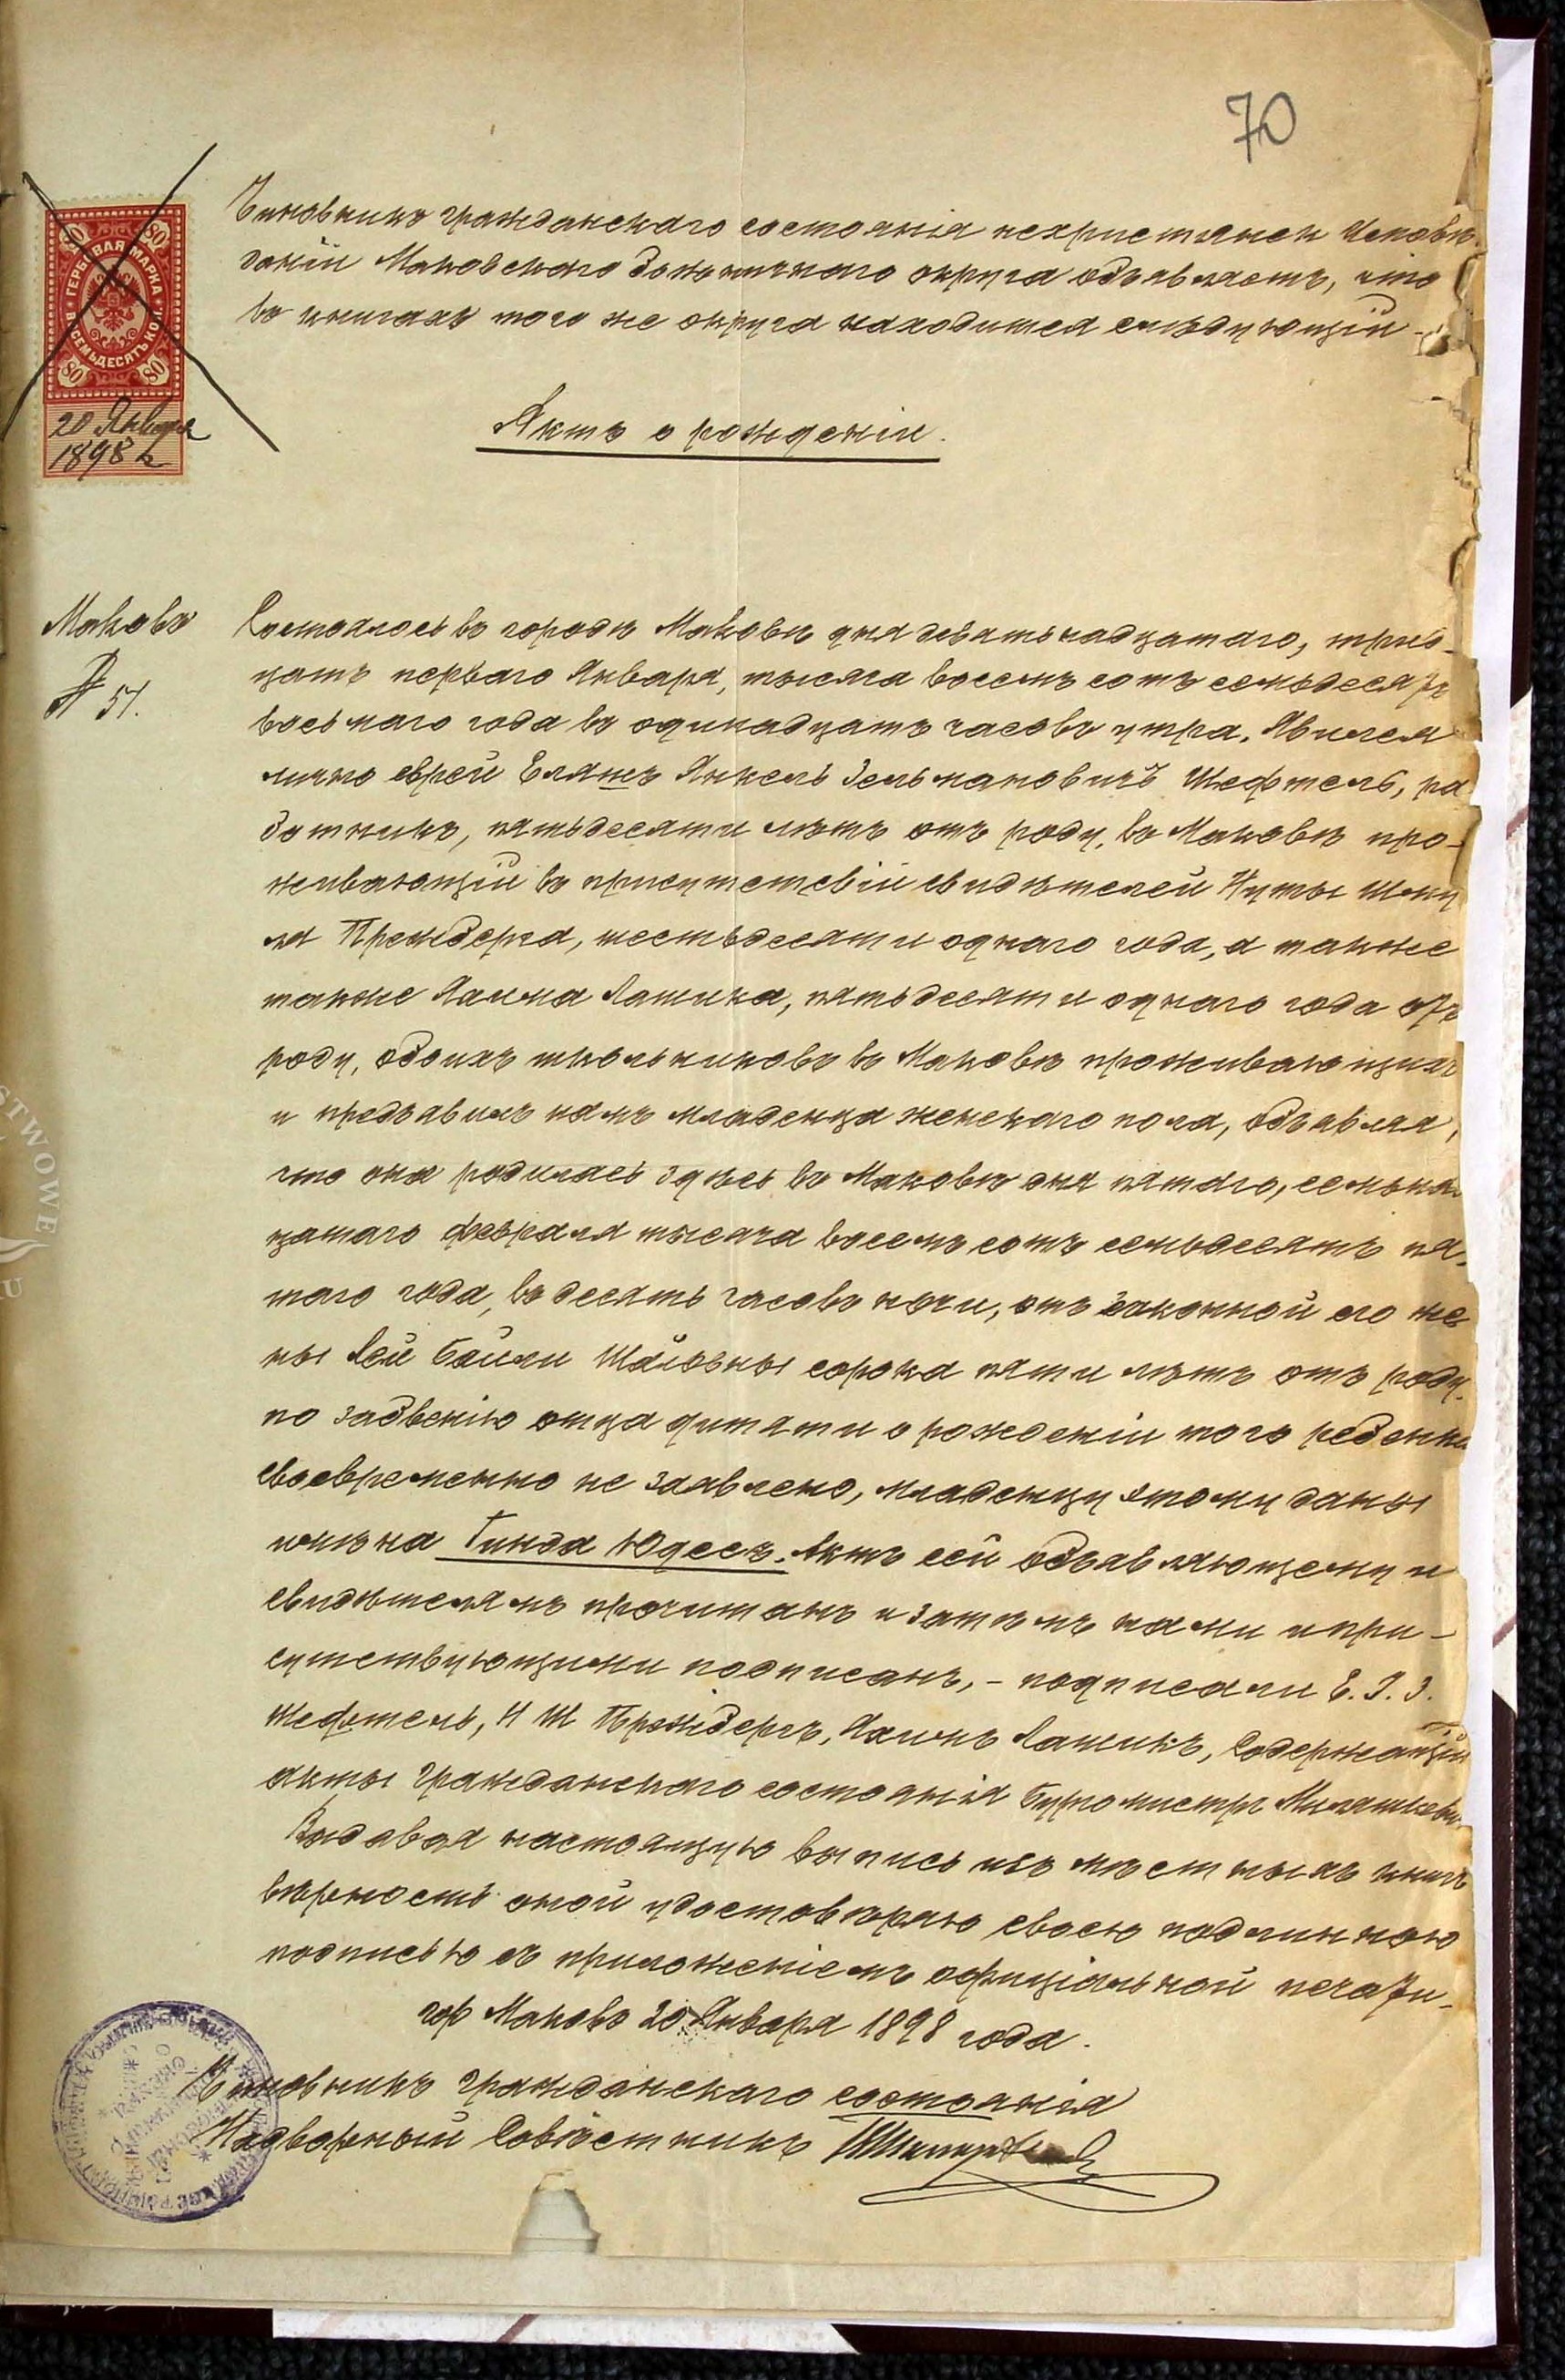 70
80 80
ГЕРБОВАЯ МАРКА
ВОСЕМЬДЕСЯТЪ КОП.
80 80
20 Января
1898 г.
Чиновникъ гражданскаго состоянія нехристіанск Исповѣ-
даній Маковскаго Божничнаго округа объявляетъ, что
въ книгахъ того же округа находится слѣдующій -
Актъ о рожденіи.
Маковъ
№ 51.
Состоялось въ городѣ Маковѣ дня девятьнадцатаго, трид-
цать перваго Января, тысяча восемь сотъ семьдесятъ
восьмаго года въ одинадцать часовъ утра. Явился
лично еврей Елянъ Янкель Зельмановичъ Шефтель, ра
ботникъ, пятьдесяти лѣтъ отъ роду, въ Маковѣ про-
живающій въ присутствіи свидѣтелей Нуты
ля Пржедерга, шестьдесяти одного года, а также
также Хаима Лашика, пятьдесяти одного года отъ
роду, обоихъ школьниковъ въ Маковѣ проживающихъ
и предъявилъ намъ младенца женскаго пола, объявляя,
что она родилась здѣсь въ Маковѣ дня пятаго, семьна
цатаго февраля тысяча восемь сотъ семьдесятъ пя-
таго года, въ десять часовъ ночи, отъ законной его же
ны Леи Байли Шаіовны сорока пяти лѣтъ отъ роду.
по отца дитяти о рожденіи того ребенка
своевременно не заявлено, младенцу этому даны
имѣна Гинда Юдесъ. Актъ сей объявляющему и
свидѣтелямъ прочитанъ и затѣмъ нами и при-
сутствующими подписанъ, - подписали Е. Я. З.
Шефтель, Н Ш Пржедергъ, Хаимъ Лашикъ, Содержащій
акты гражданскаго состоянія Бургомистръ
Выдавая настоящую выпись изъ мѣстныхъ книгъ
вѣрность оной удостовѣряю своею подлинною
подписью съ приложеніемъ офиціальной печати.
гор Маковъ 20 Января 1898 года.
Чиновникъ гражданскаго состоянія
Надворный Совѣтникъ
STWOWE
U